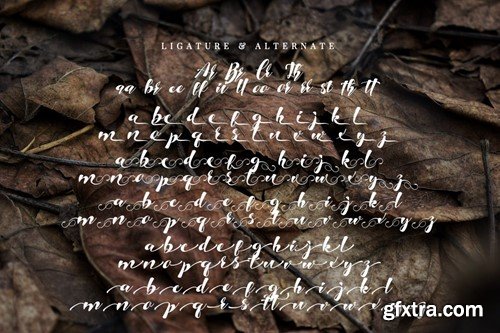 LIGATURE & ALTERNATE
Ar Br Cr Th
aa br ee ff it ll oo or rr st th tt
a b c d e f g h i j k l
m n o p q r s t u v w x y z
a b c d e f g h i j k l
m n o p q r s t u v w x y z
a b c d e f g h i j k l
m n o p q r s t u v w x y z
a b c d e f g h i j k l
m n o p q r s t u v w x y z
a b c d e f g h i j k l
m n o p q r s tt u v w x y z
gfxtra.com